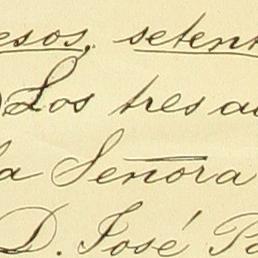 esos, setent
Los tres a
la Señora
D. José P